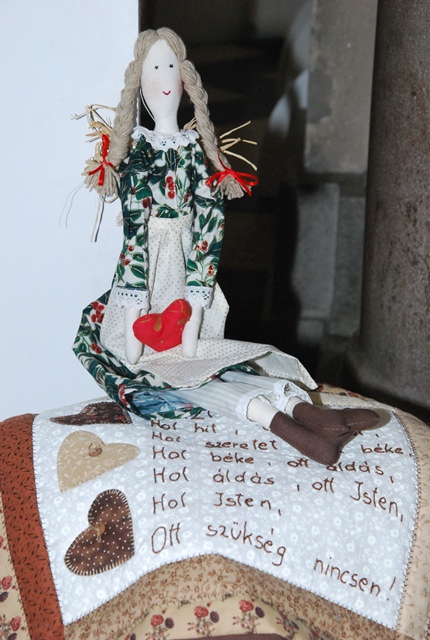 Hol hit ,
Hol szeretet béke
Hol béke , ott áldás,
Hol áldás , ott Isten,
Hol Isten,
Ott szükség nincsen!